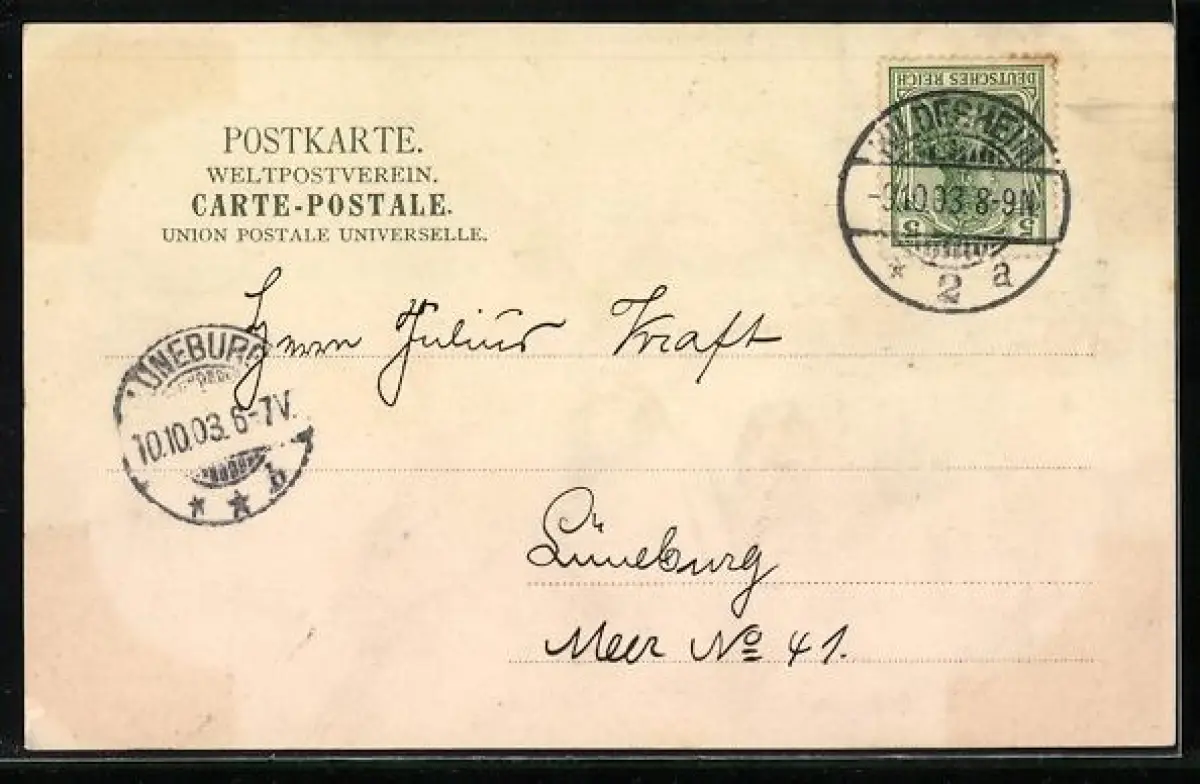 POSTKARTE.
WELTPOSTVEREIN.
CARTE-POSTALE.
UNION POSTALE UNIVERSELLE.
DEUTSCHES REICH
5 5
HILDESHEIM
-9.10.03.8-9N.
* 2 a
Herrn Julius Kraft
LÜNEBURG
10.10.03.6-7V.
* * b
Lüneburg
Meer No 41.